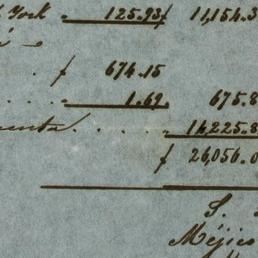 York „ 125.93 f 11,154.3
f 674.15
1.69 675.8
14,225.8
f 26,056.0
S.
Méjico